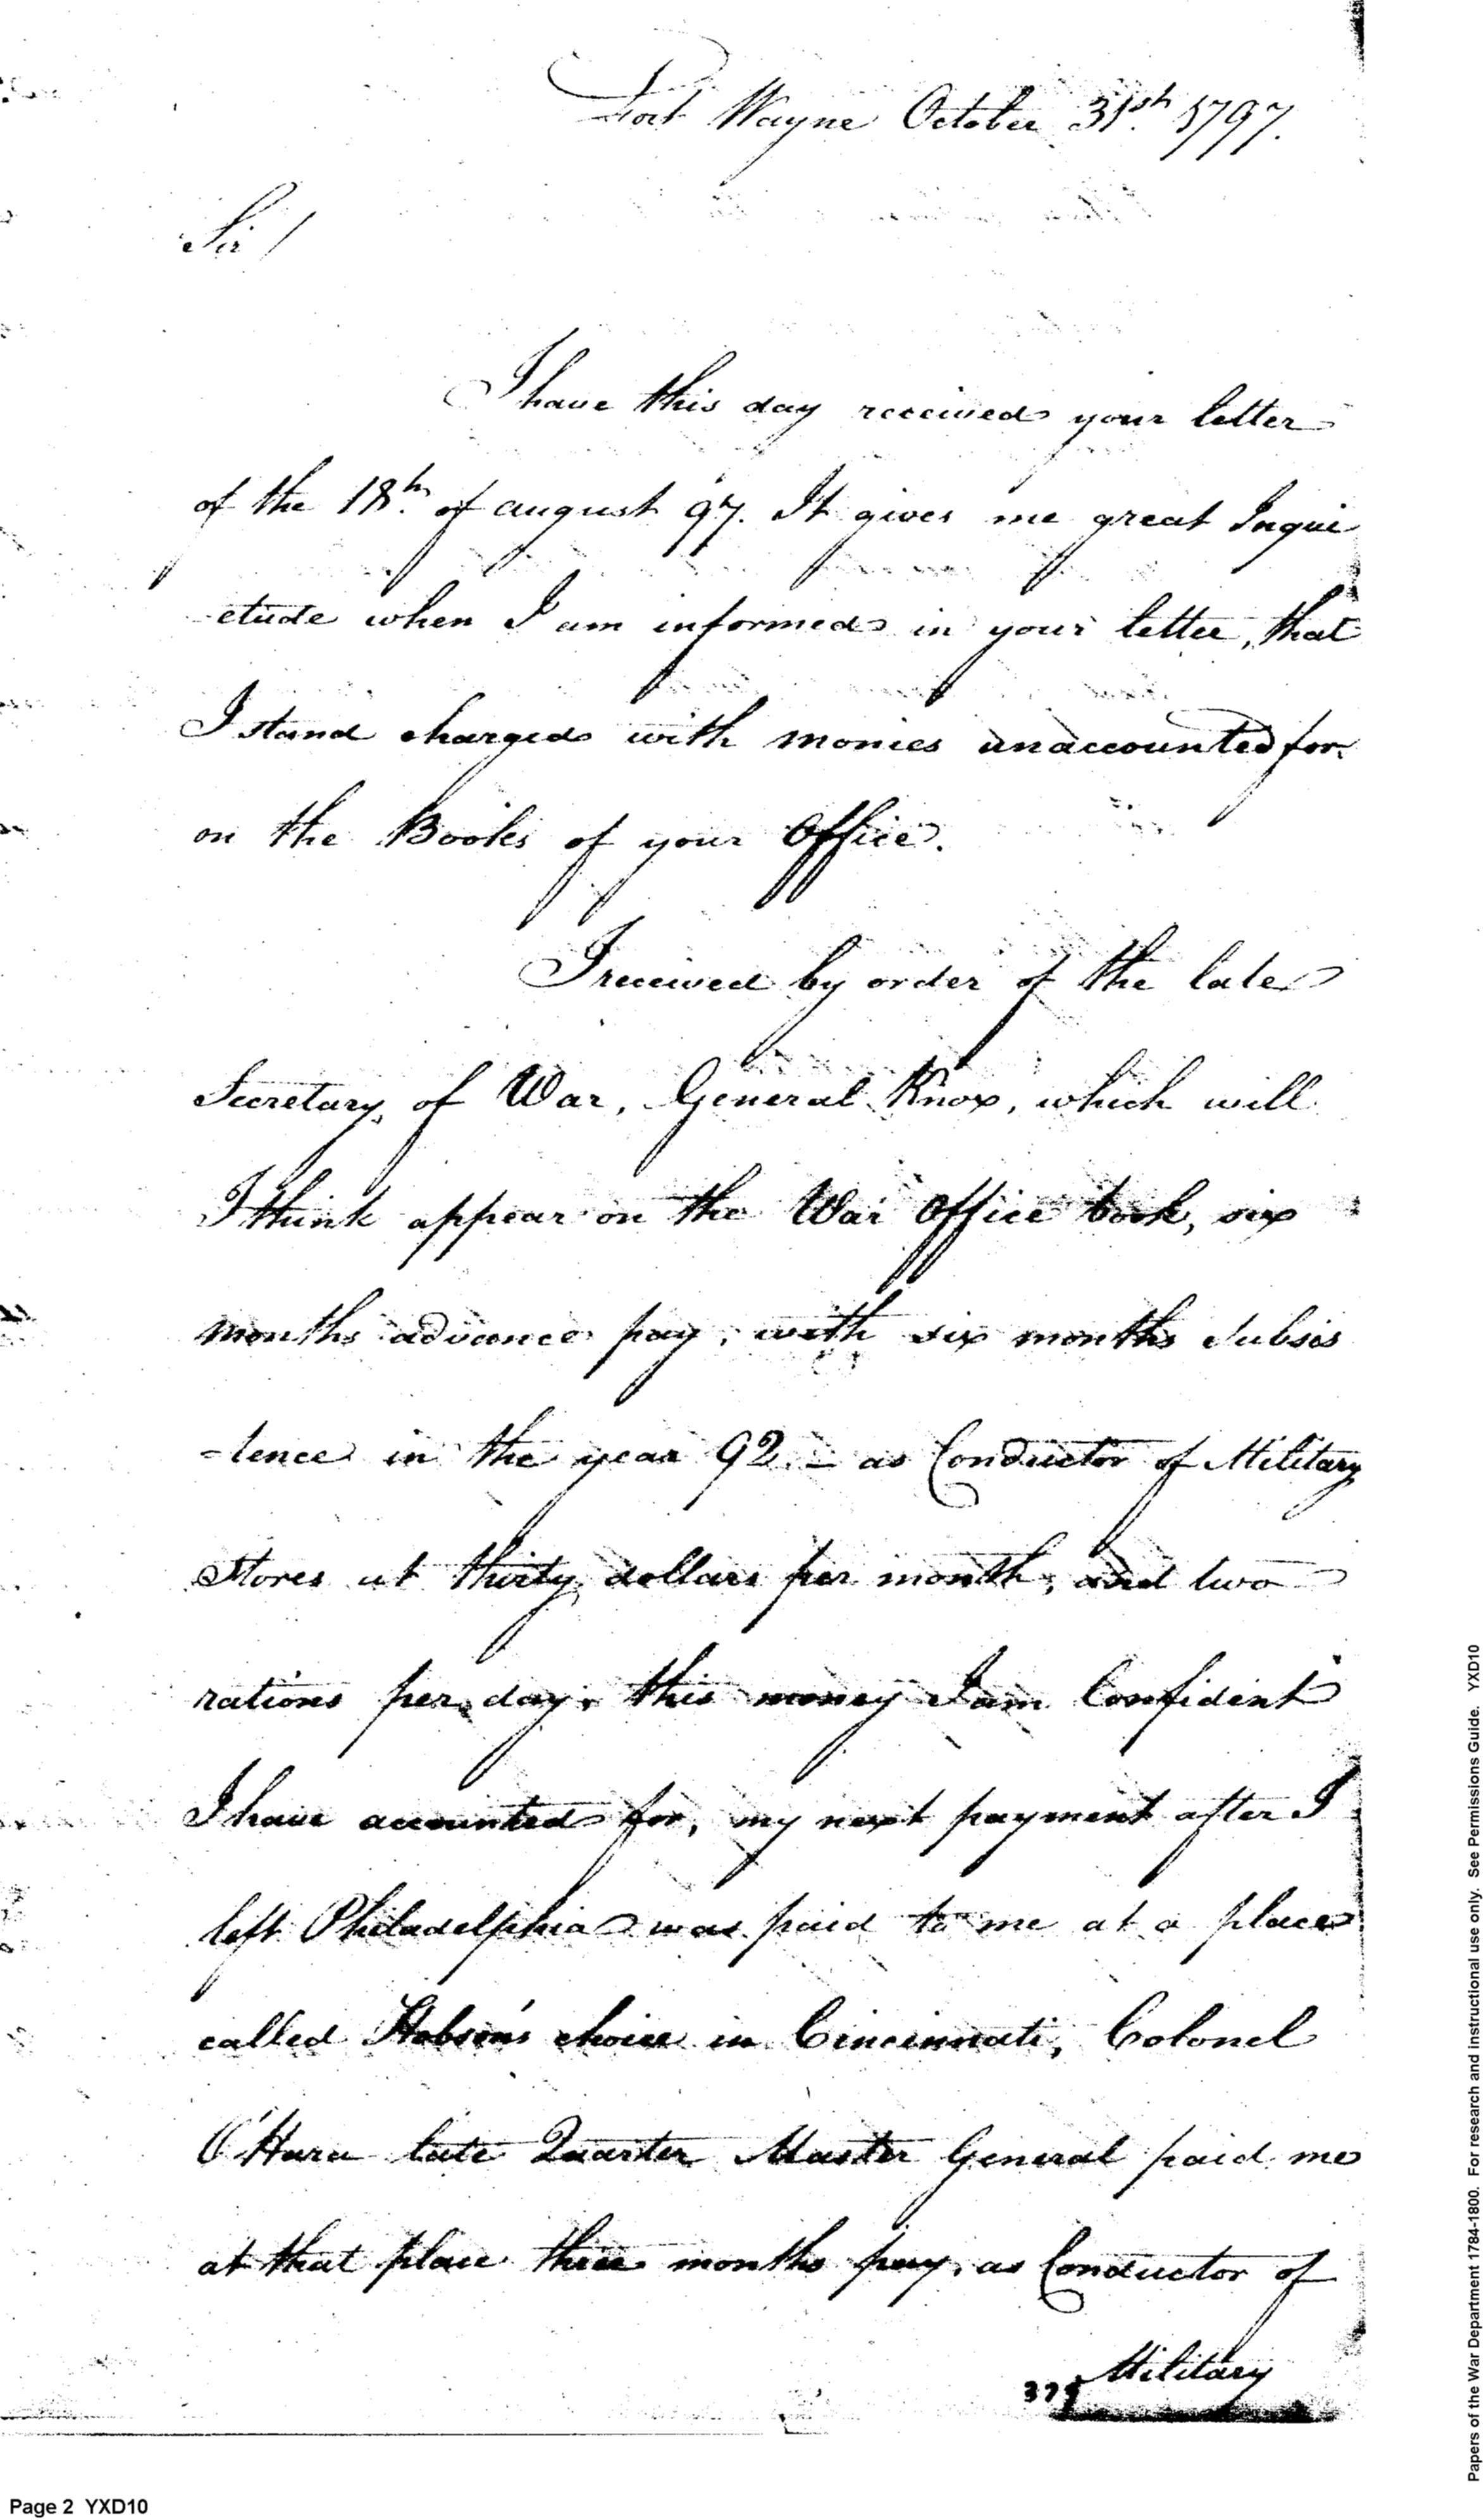 Fort Wayne October 31st. 1797.
Sir /
I have this day received your letter
of the 18th. of august 97. It gives me great Inqui
-etude when I am informed in your letter, that
I stand charged with monies unaccounted for
on the Books of your Office.
I received by order of the late
Secretary, of War, General Knox, which will
I think appear on the War Office book, six
months advance pay, with six months subsis
-tence in the year 92 - as Conductor of Military
Stores at thirty dollars per month, and two
rations per day, this money I am Confident
I have accounted for, my next payment after I
left Philadelphia was paid to me at a place
called Hobson's choice in Cincinnati, Colonel
O'Hara late Quarter Master General paid me
at that place three months pay, as Conductor of
Military
379
Page 2 YXD10
Papers of the War Department 1784-1800. For research and instructional use only. See Permissions Guide. YXD10